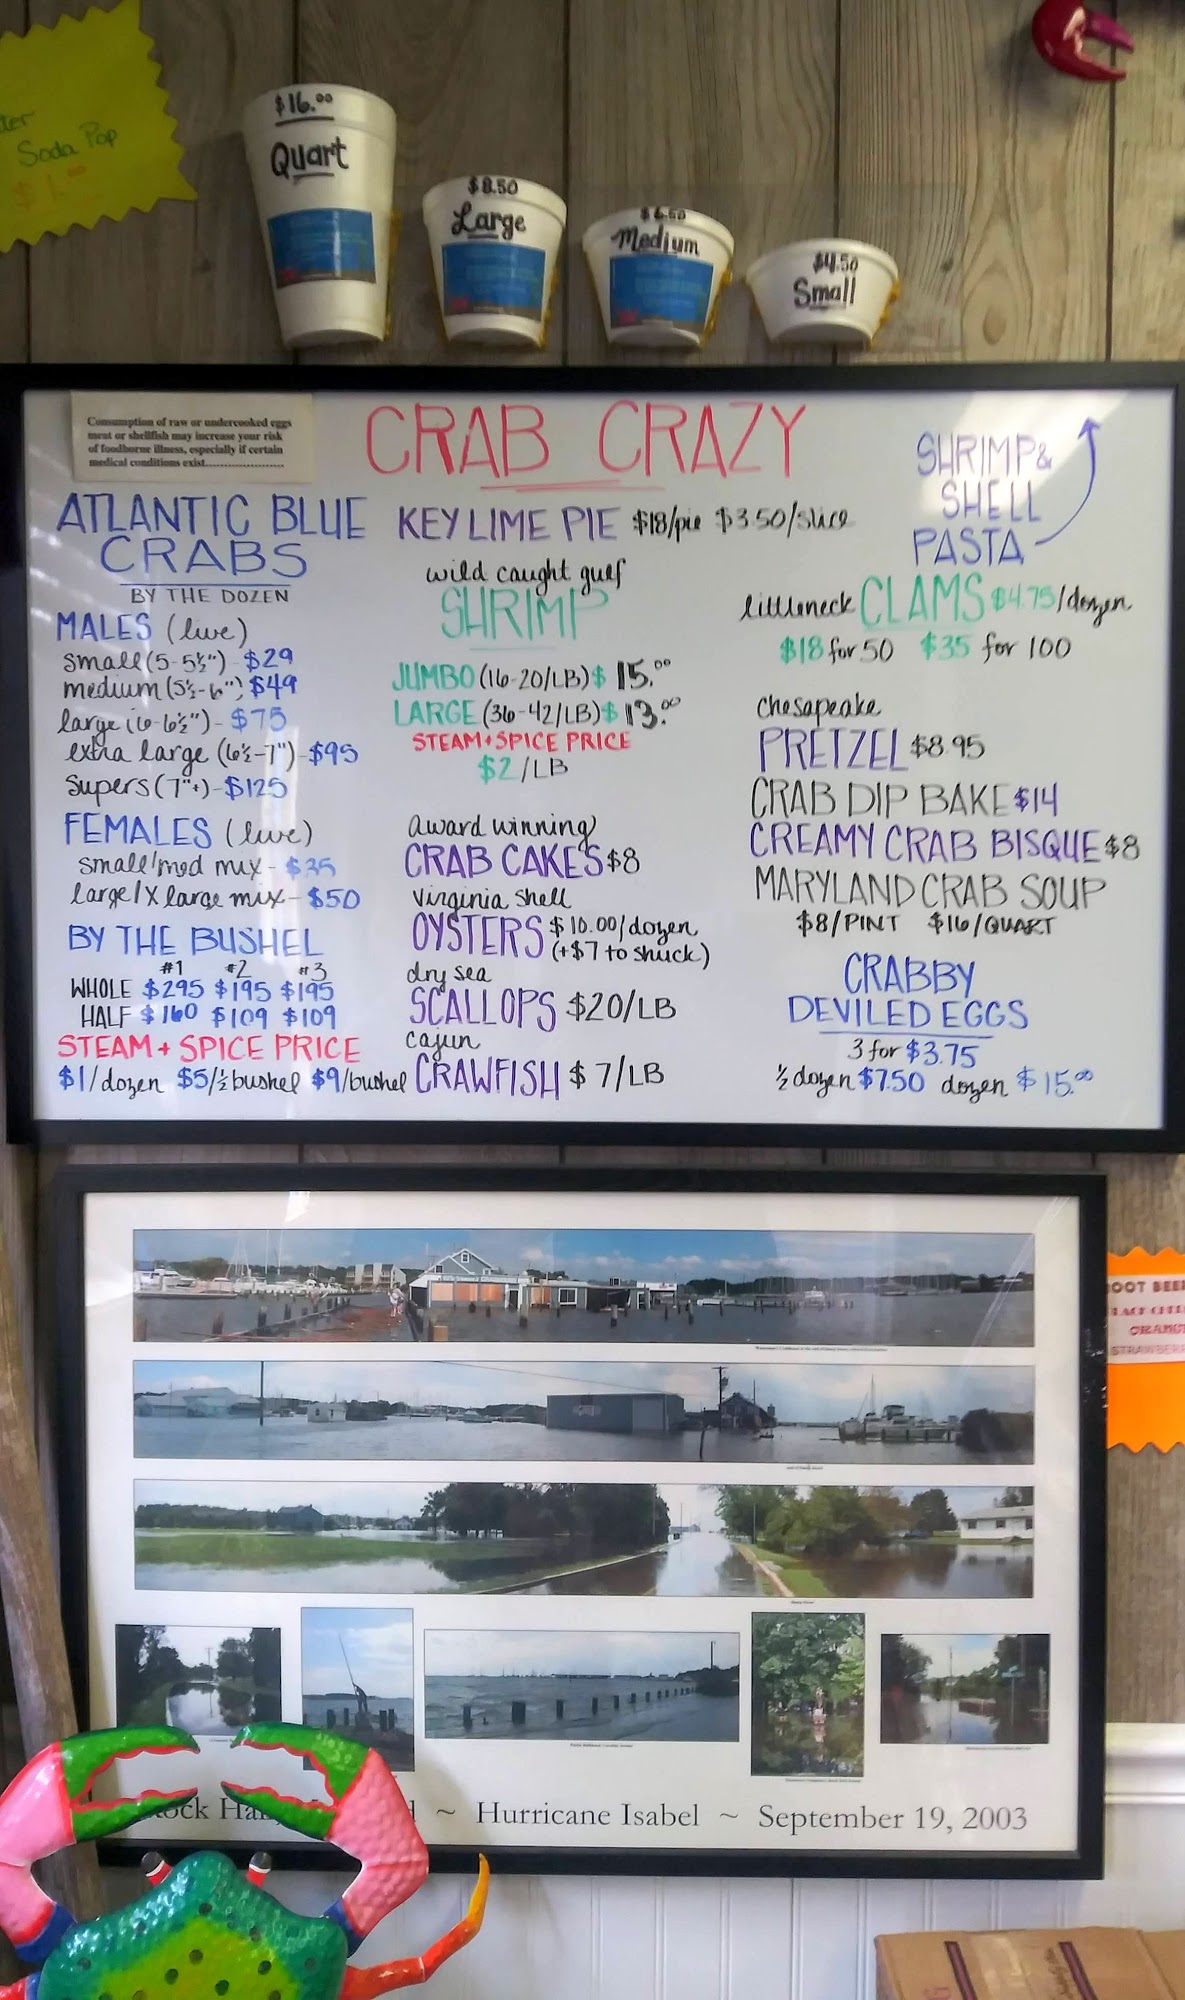 Soda Pop
$1.00
$16.00
Quart
$8.50
Large
$6.50
Medium
$4.50
Small
Consumption of raw or undercooked eggs
meat or shellfish may increase your risk
of foodborne illness, especially if certain
medical conditions exist.....................
CRAB CRAZY
SHRIMP &
SHELL
PASTA
ATLANTIC BLUE
CRABS
BY THE DOZEN
MALES (live)
small (5-5½") - $29
medium (5½-6") $49
large (6-6½") - $75
extra large (6½-7") - $95
supers (7"+) - $125
FEMALES (live)
small/med mix - $35
large/X large mix - $50
BY THE BUSHEL
#1 #2 #3
WHOLE $295 $195 $195
HALF $160 $109 $109
STEAM + SPICE PRICE
$1/dozen $5/½ bushel $9/bushel
KEY LIME PIE $18/pie $3.50/slice
wild caught gulf
SHRIMP
JUMBO (16-20/LB) $15.00
LARGE (36-42/LB) $13.00
STEAM + SPICE PRICE
$2/LB
award winning
CRAB CAKES $8
virginia shell
OYSTERS $10.00/dozen
(+$7 to shuck)
dry sea
SCALLOPS $20/LB
cajun
CRAWFISH $7/LB
littleneck CLAMS $4.75/dozen
$18 for 50 $35 for 100
chesapeake
PRETZEL $8.95
CRAB DIP BAKE $14
CREAMY CRAB BISQUE $8
MARYLAND CRAB SOUP
$8/PINT $16/QUART
CRABBY
DEVILED EGGS
3 for $3.75
½ dozen $7.50 dozen $15.00
~ Hurricane Isabel ~ September 19, 2003